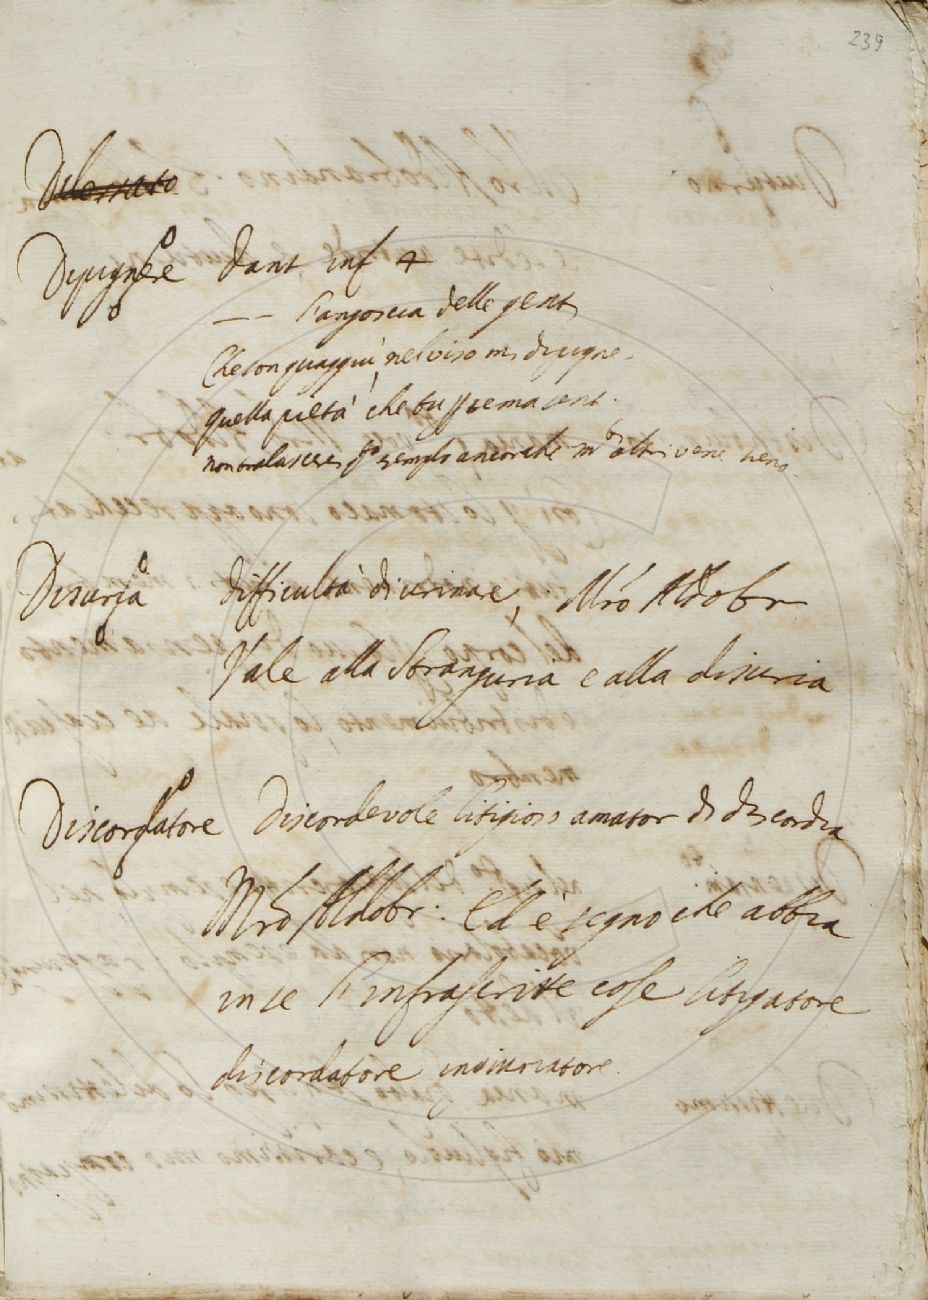 239
Dipignere Dant inf 4
L'angoscia delle genti
Che son quaggiù nel viso mi dipigne
quella pietà che tu per tema senti
non tralascere esemplo ancorche altri
Disuria difficultà di urinare, Mró Aldobr
Vale alla Stranguria e alla disuria
Discordatore Discordevole litigioso amator di discordia
Mró Aldobr: Ed è segno che abbia
in se l'infrascritte cose litigatore
discordatore ingiuriatore.